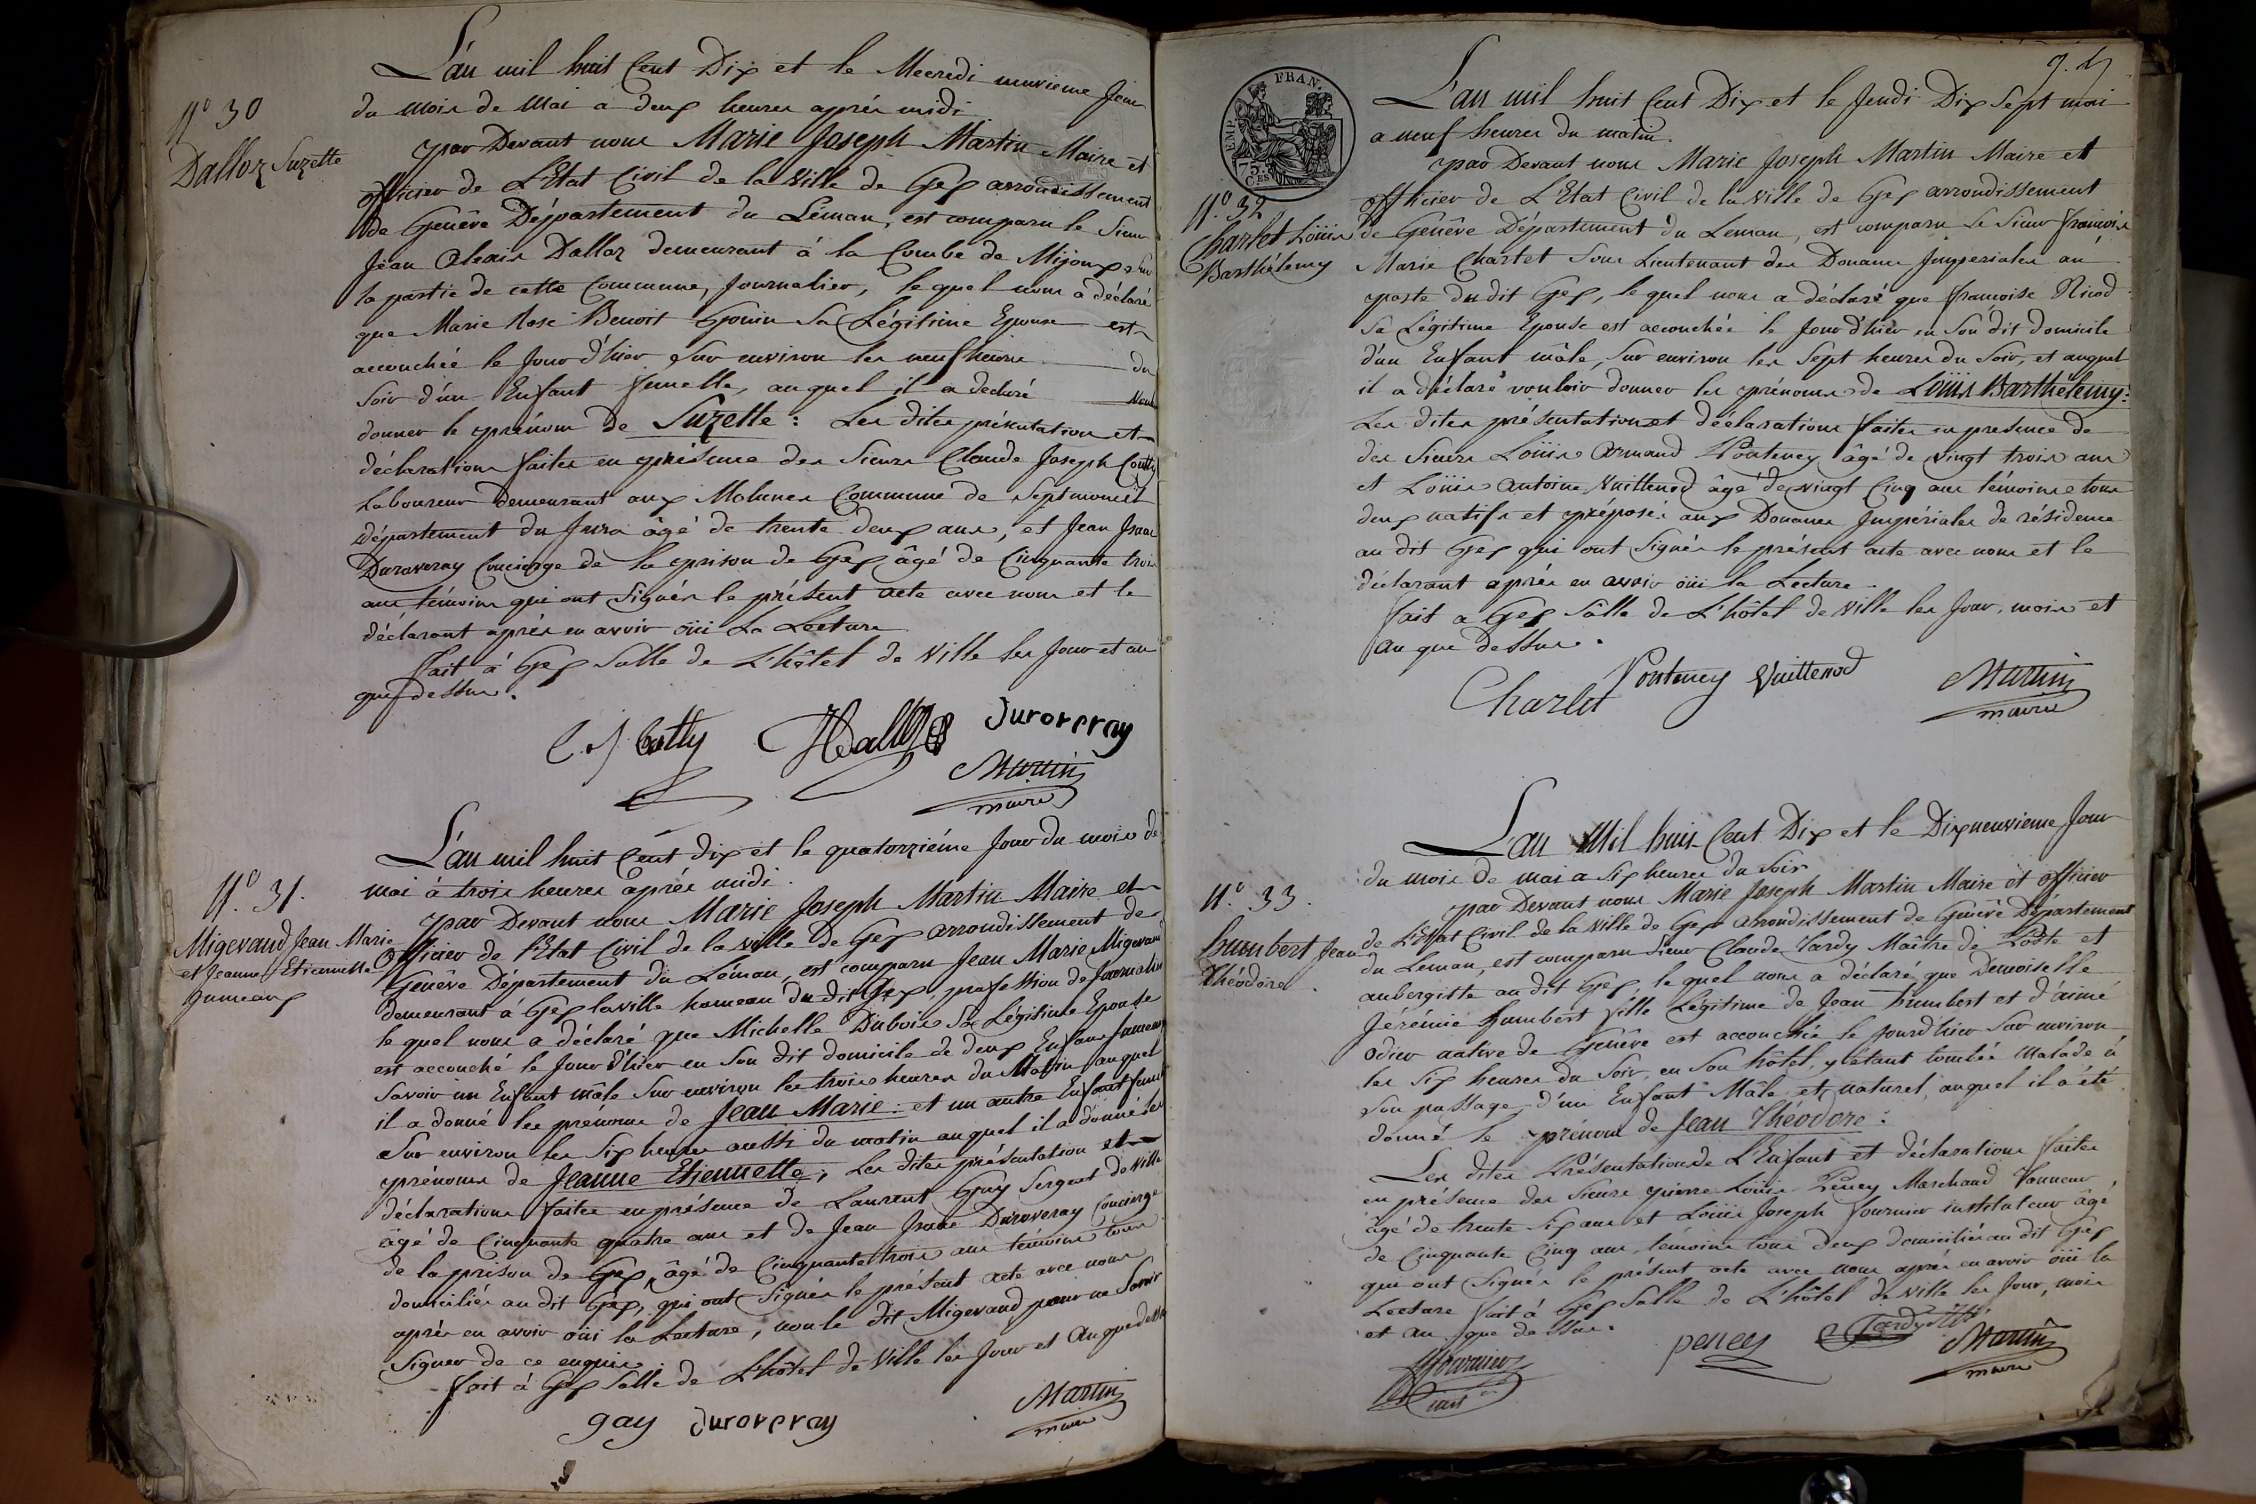 N° 30
Dalloz Suzette
L'an mil huit Cent Dix et le Mecredi neuvieme Jour
du mois de Mai a deux heures après midi
par Devant nous Marie Joseph Martin Maire et
officier de L'Etat Civil de la Ville de Gex arrondissement
de Genêve Département du Léman, est comparu le Sieur
Jean Alexis Dalloz demeurant à la Combe de Mijoux, sur
la partie de cette Commune, Journalier, lequel nous a déclaré
que Marie Rose Benoit Gouin Sa Légitime Epouse est
accouchée le Jour d'hier Sur environ les neuf heures du
Soir d'un Enfant femelle, auquel il a déclaré
donner le prénom de Suzette : Les dites présentation et
déclarations faites en présence des Sieurs Claude Joseph
Laboureur demeurant aux Molunes Commune de Septmoncel
département du Jura âgé de trente deux ans, et Jean Isaac
Duroveray Concierge de la prison de Gex âgé de Cinquante trois
ans, témoins qui ont Signés le présent acte avec nous et le
déclarant après en avoir öüi La Lecture
fait à Gex Salle de L'hôtel de Ville les Jour et an
que dessus.
Duroveray
Martin
maire
N° 31.
Migevand Jean Marie
et Jeanne Etiennette
Jumeaux
L'an mil huit Cent dix et le quatorzième Jour du mois de
mai à trois heures après midi.
par Devant nous Marie Joseph Martin Maire et
Officier de l'Etat Civil de la ville de Gex arrondissement de
Genêve Département du Léman, est comparu Jean Marie Migevand
demeurant à Gex la ville hameau du dit Gex, profession de Journalier
lequel nous a déclaré que Michelle Dubois Sa Légitime Epouse
est accouché le Jour d'hier en Son dit domicile de deux Enfans Jumeaux
Savoir un Enfant mâle Sur environ les trois heures du Matin auquel
il a donné les prénoms de Jean Marie : et un autre Enfant femelle
Sur environ les Six heures aussi du matin auquel il a donné les
prénoms de Jeanne Etiennette, Les dites présentation et
déclarations faites en présence de Laurent Gay Sergent de Ville
âgé de Cinquante quatre ans et de Jean Isaac Duroveray Concierge
de la prison de Gex, âgé de Cinquante trois ans témoins tous
domiciliés au dit Gex, qui ont Signés le présent acte avec nous
après en avoir öüi la Lecture, non le dit Migevand pour ne Savoir
Signer de ce enquis
fait à Gex Salle de L'hôtel de Ville les Jour et An que dessus
gay Duroveray
Martin
maire
EMP. FRAN.
75.
N° 32
Charlet Löüis
Barthélemy
L'an mil huit Cent Dix et le Jeudi Dix Sept mai
a neuf heures du matin.
par Devant nous Marie Joseph Martin Maire et
officier de L'Etat Civil de la ville de Gex arrondissement
de Genêve Département du Leman, est comparu le Sieur François
Marie Charlet Sous Lieutenant des Douanes Impériales au
poste du dit Gex, lequel nous a déclaré que françoise Nicod
Sa Légitime Epouse est accouchée le Jour d'hier en Son dit domicile
d'un Enfant mâle, Sur environ les Sept heures du Soir, et auquel
il a déclaré vouloir donner les prénoms de Löüis Barthélemy :
Les dites présentation et déclarations faites en presence de
des Sieurs Löüis Armand Ponteney âgé de vingt trois ans
et Löüis Antoine Vuittenod âgé de vingt Cinq ans témoins tous
deux natifs et préposés aux Douanes Impériales de résidence
au dit Gex qui ont Signés le présent acte avec nous et le
déclarant après en avoir öüi la Lecture.
fait a Gex Sâlle de L'hôtel de Ville les Jour, mois et
an que dessus.
Charlet Ponteney Vuittenod
Martin
maire
N° 33.
humbert Jean
Théodore
L'an Mil huit Cent Dix et le Dix neuvieme Jour
du mois de mai a Six heures du Soir
par Devant nous Marie Joseph Martin Maire et officier
de L'Etat Civil de la ville de Gex arrondissement de Genêve Département
du Leman, est comparu Sieur Claude Tardy Maître de Poste et
aubergiste au dit Gex, lequel nous a déclaré que Demoiselle
Jérémie humbert fille Légitime de Jean humbert et d'aimé
Odier native de Genêve est accouchée le Jour d'hier Sur environ
les Six heures du Soir, en Son hôtel, y étant tombée Malade à
Son passage, d'un Enfant Mâle et naturel, auquel il a été
donné le prénom de Jean Théodore :
Les dites Présentation de L'Enfant et déclarations faites
en présence des Sieurs pierre Löüis Peney Marchand Tanneur
âgé de trente Six ans et Löüis Joseph fournier instituteur âgé
de Cinquante Cinq ans, témoins tous deux domiciliés au dit Gex
qui ont Signés le présent acte avec nous après en avoir öüi la
Lecture fait à Gex Salle de L'hôtel de ville les Jour, mois
et an que dessus.
fournier
peney
Tardy
Martin
maire